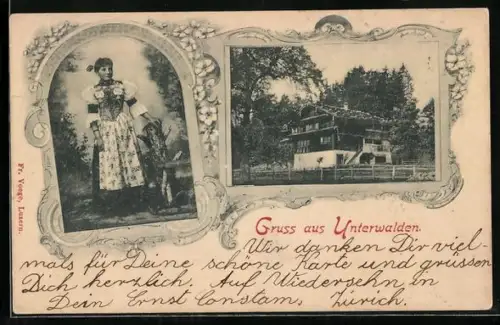 Gruss aus Unterwalden.
Wir danken Dir viel-
mals für Deine schöne Karte und grüssen
Dich herzlich. Auf Wiedersehn, in
Dein Ernst Constam. Zürich.
Fr. Voege, Luzern.